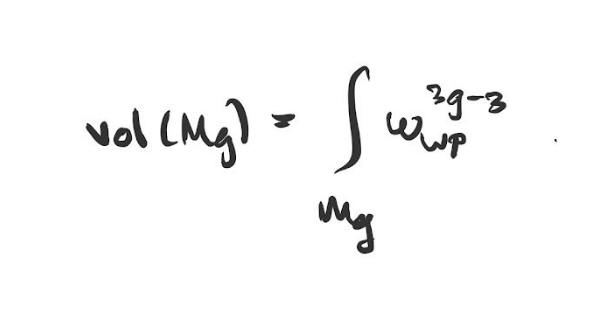 vol(Mg) = ∫_{Mg} ω_{WP}^{3g-3} .